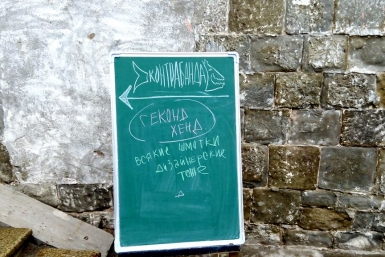 КОНТРАБАНДА
СЕКОНД
ХЕНД
ВСЯКИЕ ШМОТКИ
ДИЗАЙНЕРСКИЕ
ТОЖЕ